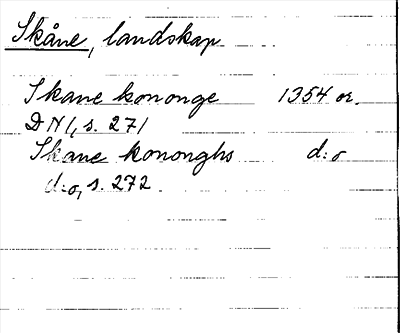 Skåne, landskap
Skane kononge 1354 or.
DN 1, s. 271
Skane konongs d:o
d:o, s. 272